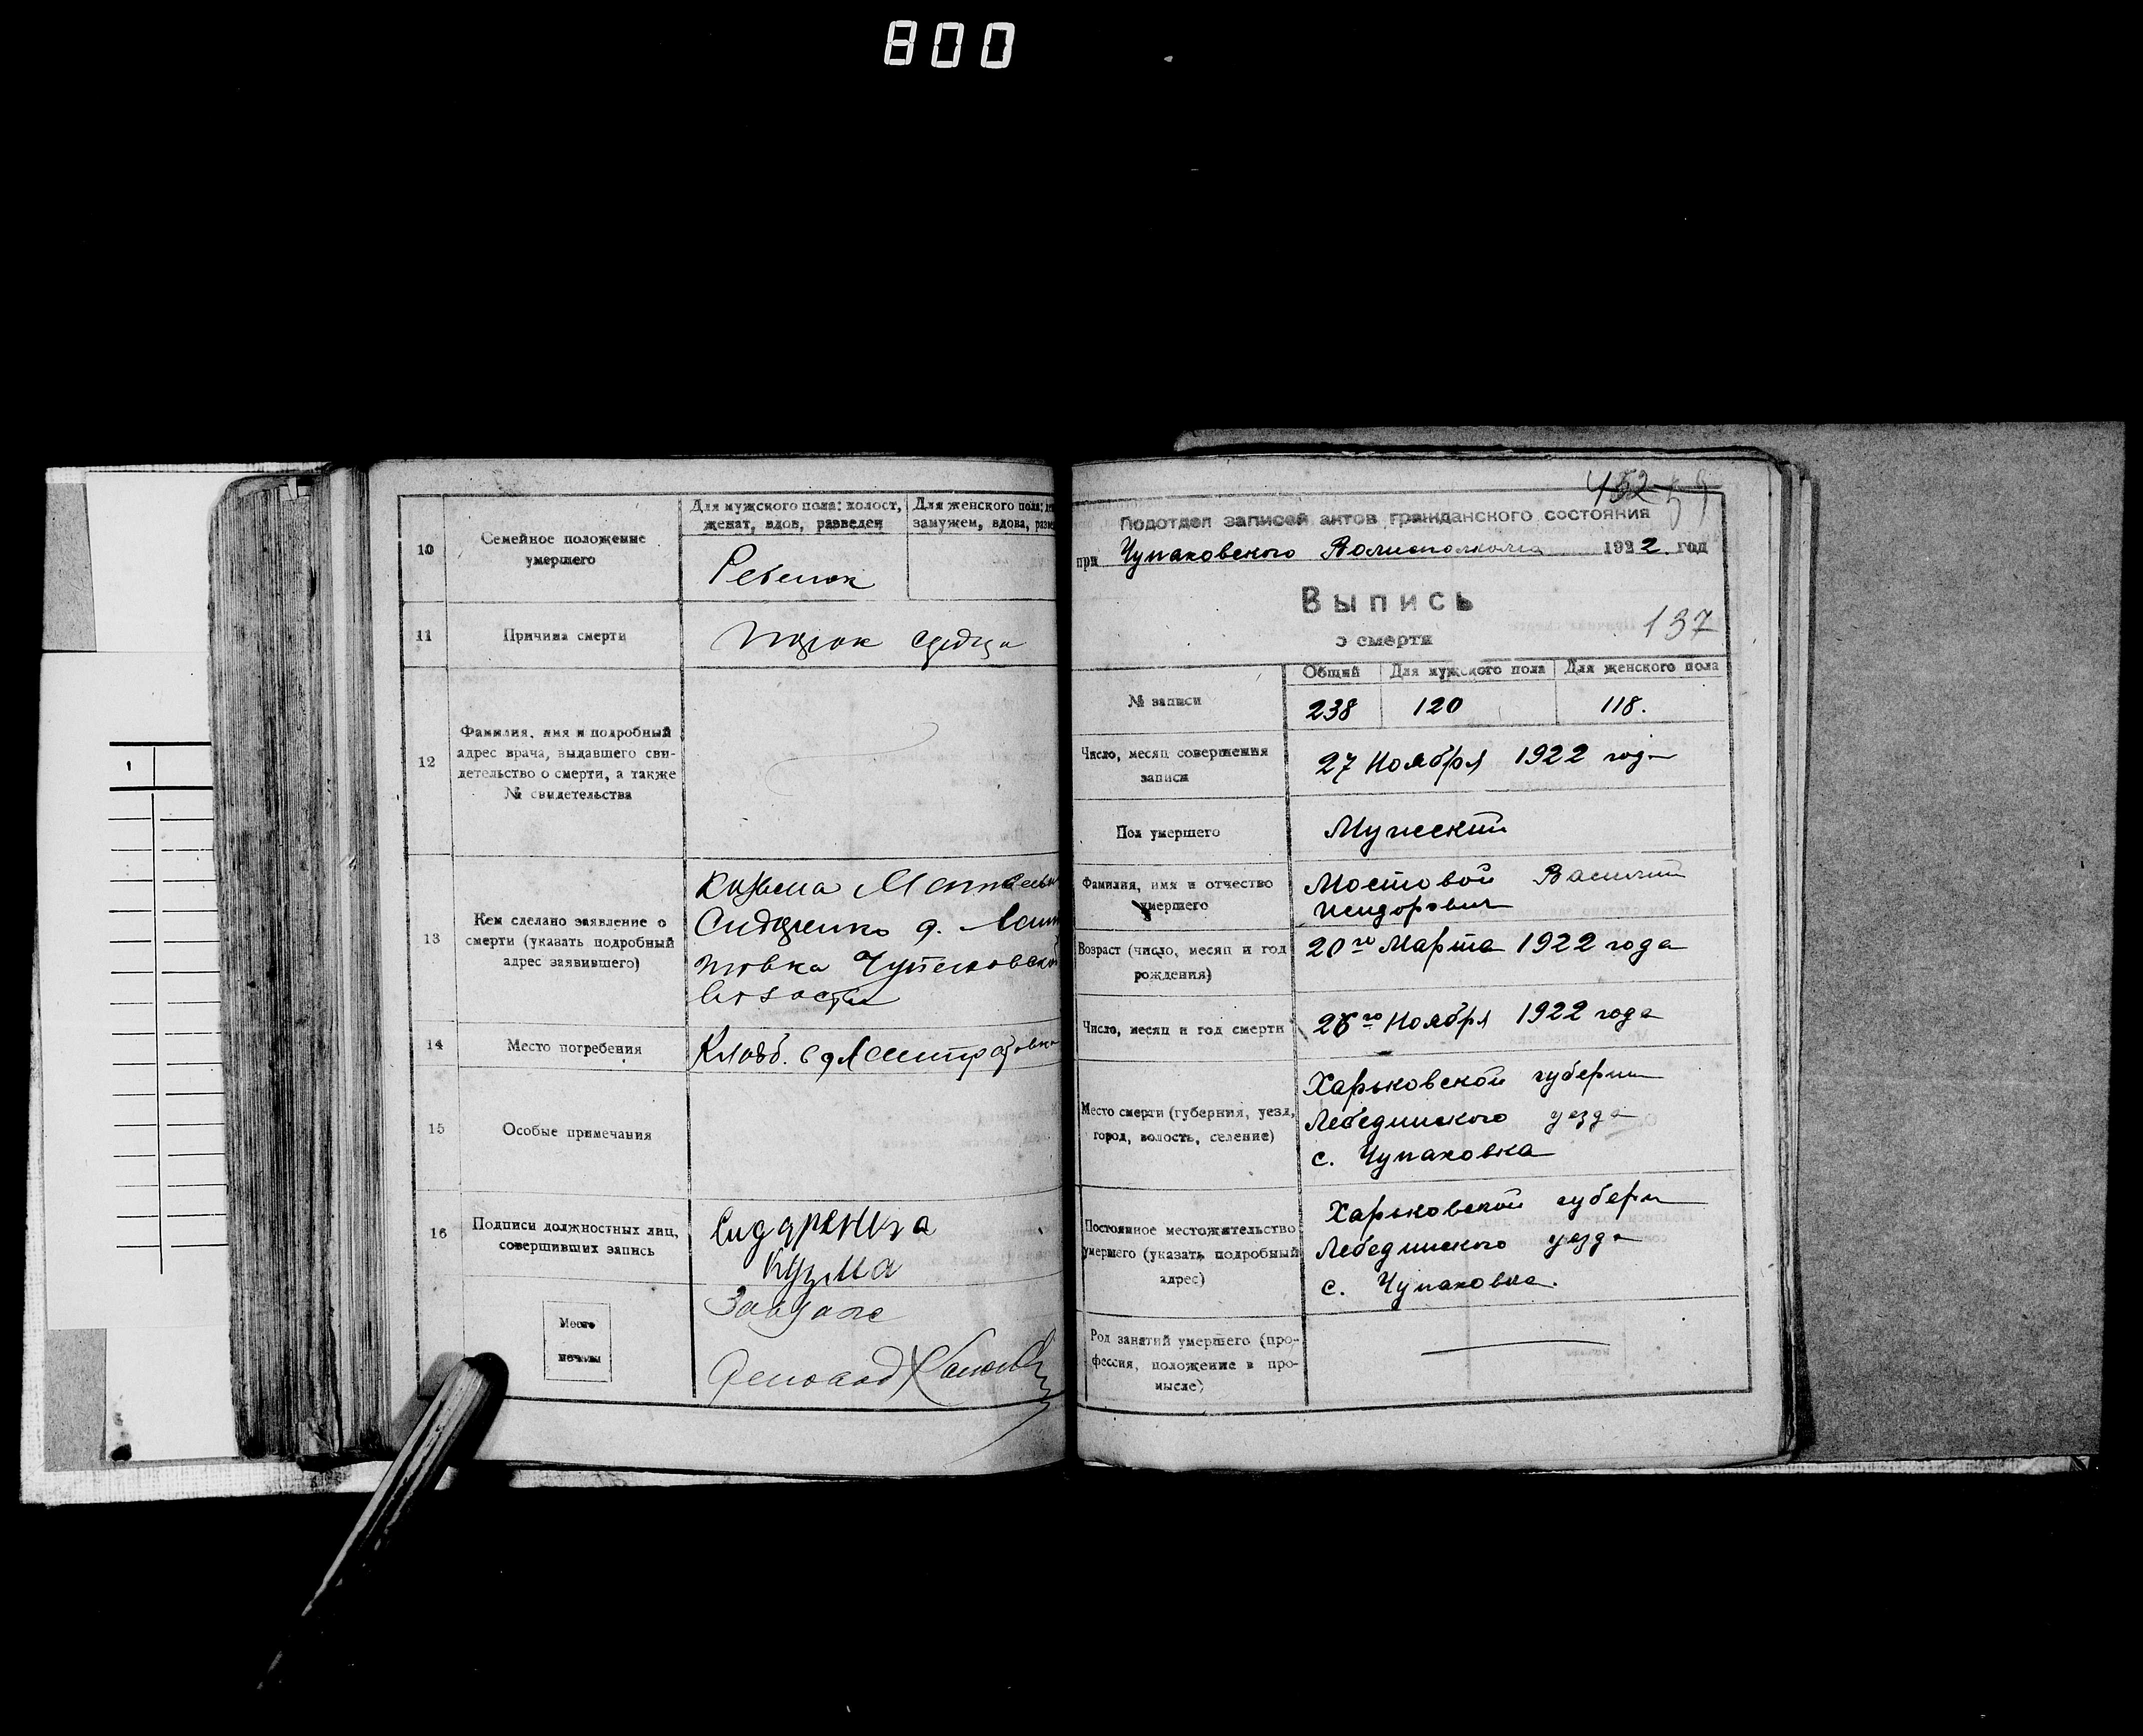 800
10
Семейное положение
умершего
Для мужского пола: холост,
женат, вдов, разведен
Для женского пола:
замужем, вдова,
Ребенок
11
Причина смерти
порок сердца
12
Фамилия, имя и подробный
адрес врача, выдавшего сви-
детельство о смерти, а также
№ свидетельства
13
Кем сделано заявление о
смерти (указать подробный
адрес заявившего)
Кузьма
Сидоренко д.
14
Место погребения
Кладб.
15
Особые примечания
16
Подписи должностных лиц,
совершивших запись
Сидяренка
Кузма
Место
печати
452 59
Подотдел записей актов гражданского состояния
при Чупаковского Волисполкома 1922 год
Выпись
о смерти
137
№ записи
Общий
Для мужского пола
Для женского пола
238
120
118.
Число, месяц совершения
записи
27 Ноября 1922 года
Пол умершего
Мужской
Фамилия, имя и отчество
умершего
Мостовой Василий
Исидорович
Возраст (число, месяц и год
рождения)
20го Марта 1922 года
Число, месяц и год смерти
26го Ноября 1922 года
Место смерти (губерния, уезд,
город, волость, селение)
Харьковской губернии
Лебединского уезда
с. Чупаковка
Постоянное местожительство
умершего (указать подробный
адрес)
Харьковской губерн
Лебединского уезда
с. Чупаковка.
Род занятий умершего (про-
фессия, положение в про-
мысле)